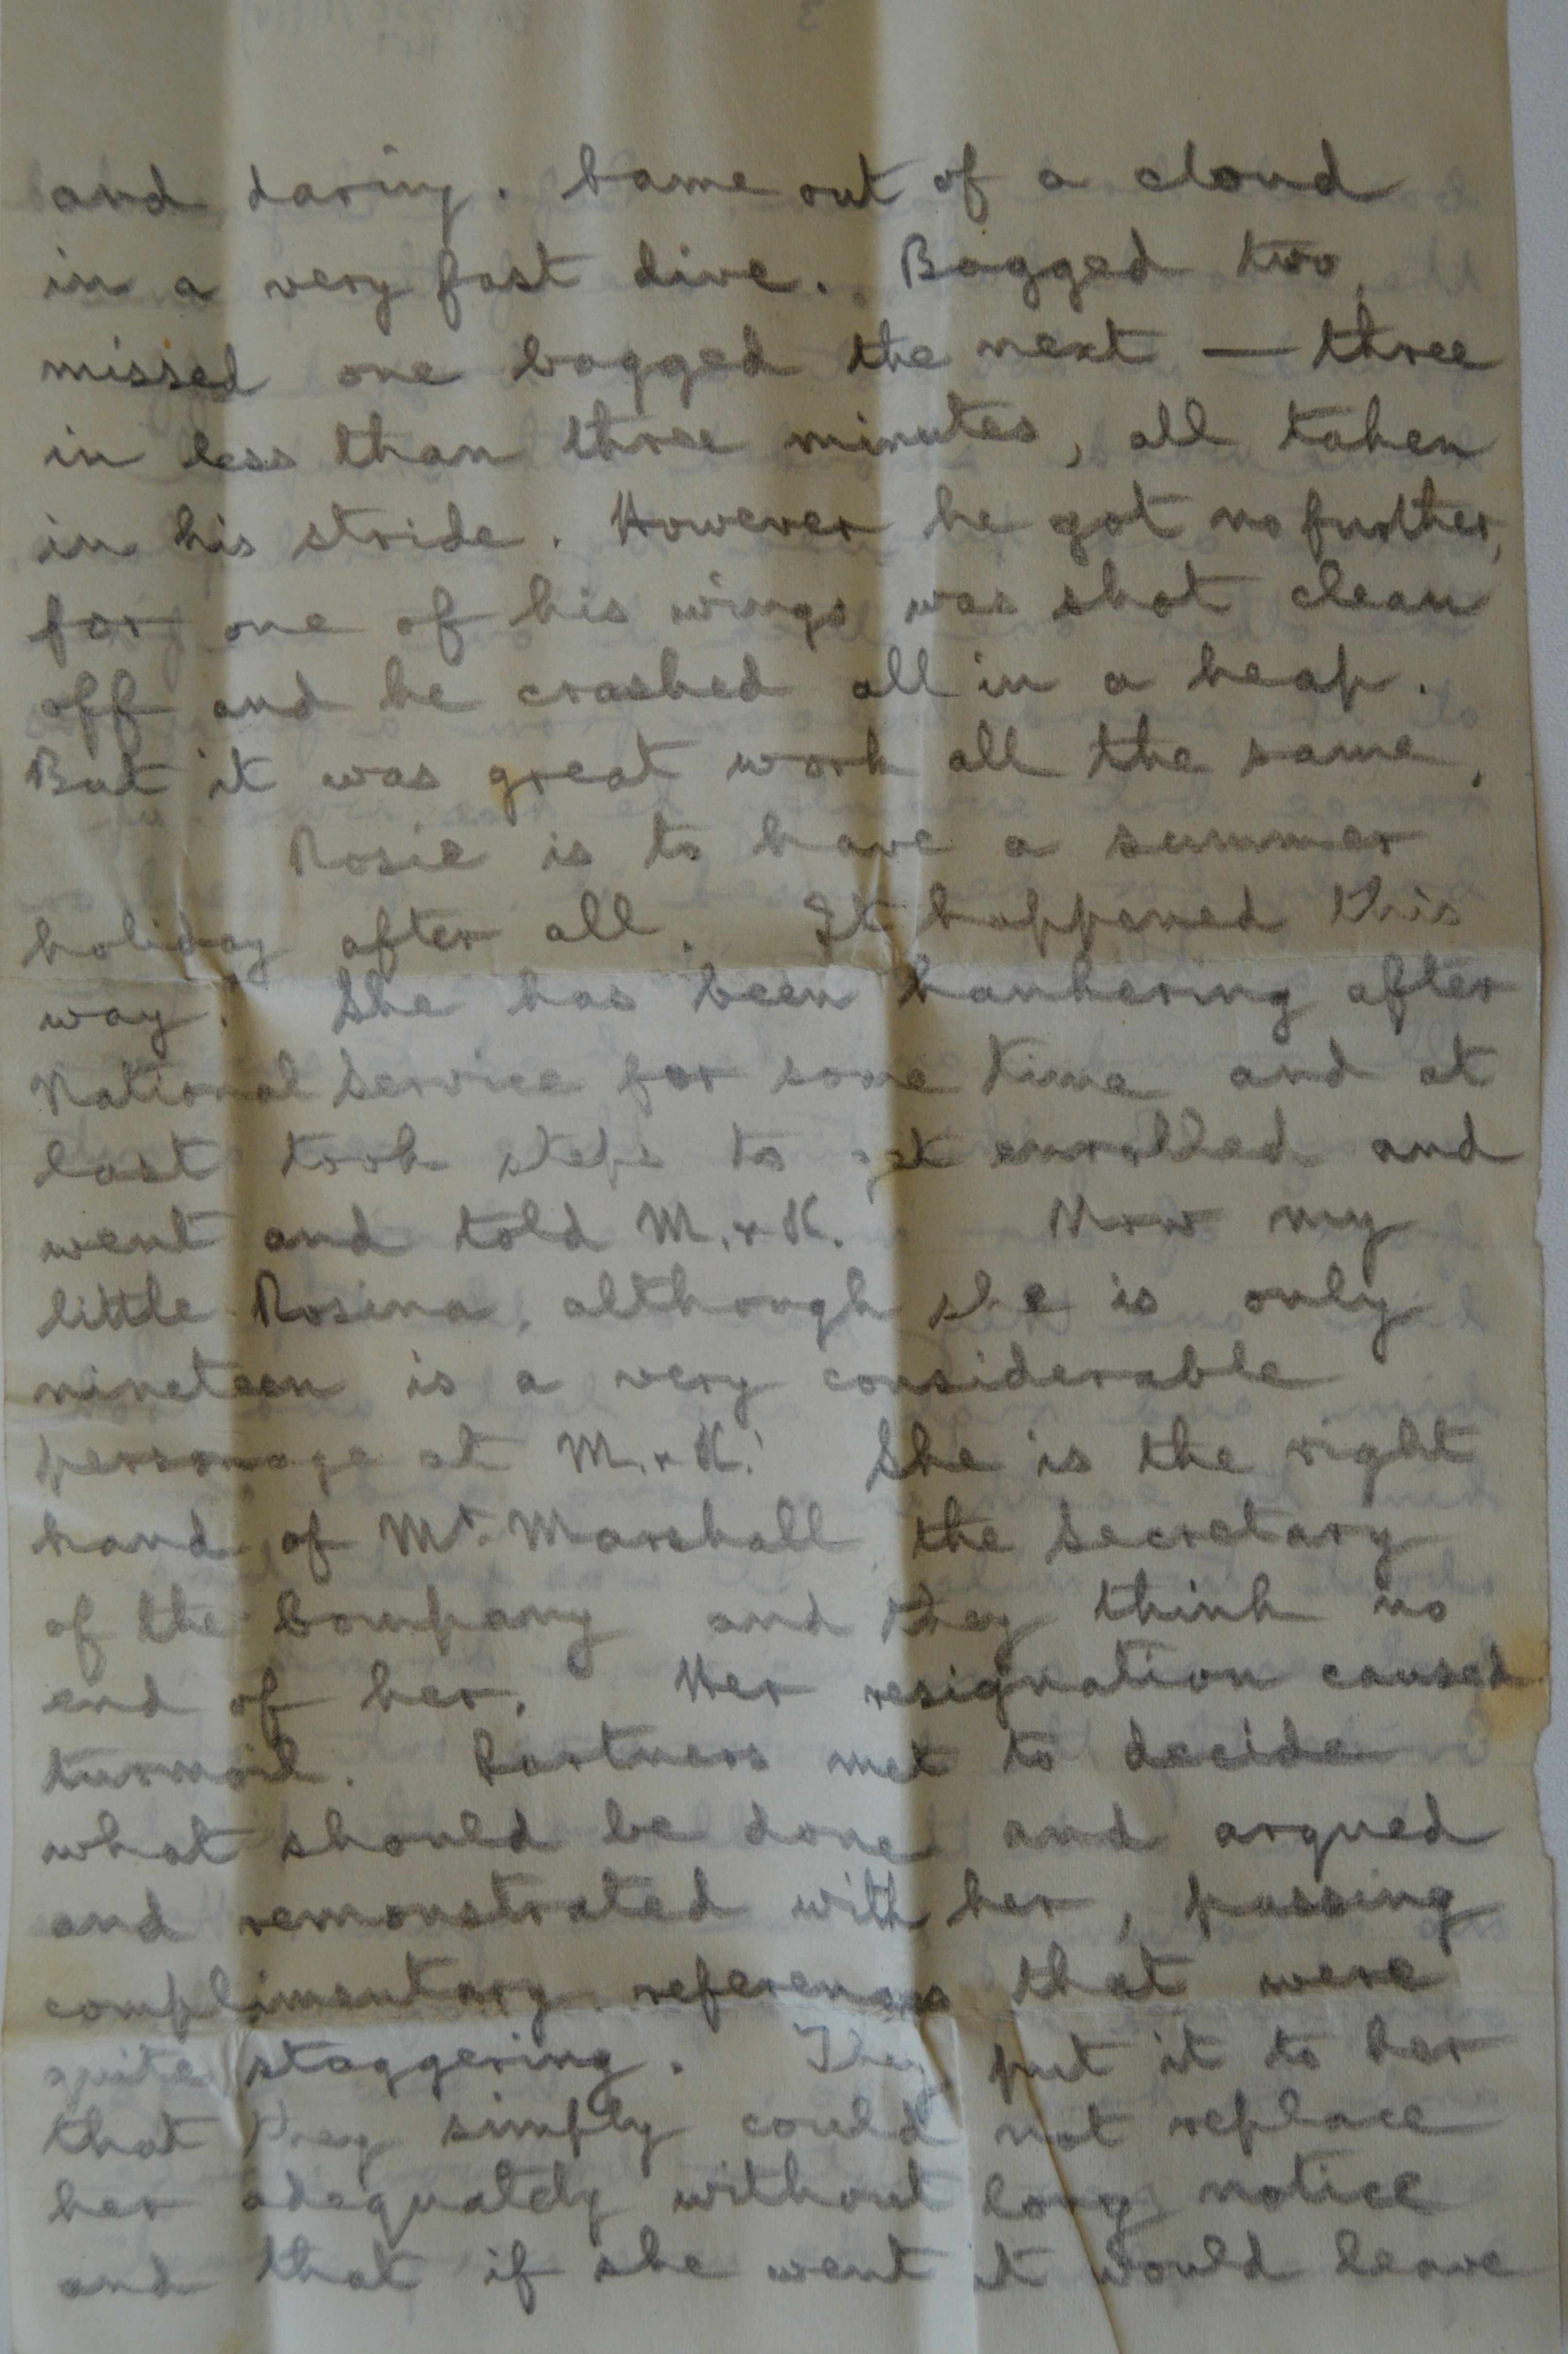 and daring. Came out of a cloud
in a very fast dive. Bagged two,
missed one bagged the next — three
in less than three minutes, all taken
in his stride. However he got no further,
for one of his wings was shot clean
off and he crashed all in a heap.
But it was great work all the same.
Rosie is to have a summer
holiday after all. It happened this
way. She has been hankering after
National Service for some time and at
last took steps to get enrolled and
went and told M. & K. Now my
little Rosina, although she is only
nineteen is a very considerable
personage at M. & K.' She is the right
hand of Mr. Marshall the Secretary
of the Company and they think no
end of her. Her resignation caused
turmoil. Partners met to decide
what should be done and argued
and remonstrated with her, passing
complimentary references that were
quite staggering. They put it to her
that they simply could not replace
her adequately without long notice
and that if she went it would leave